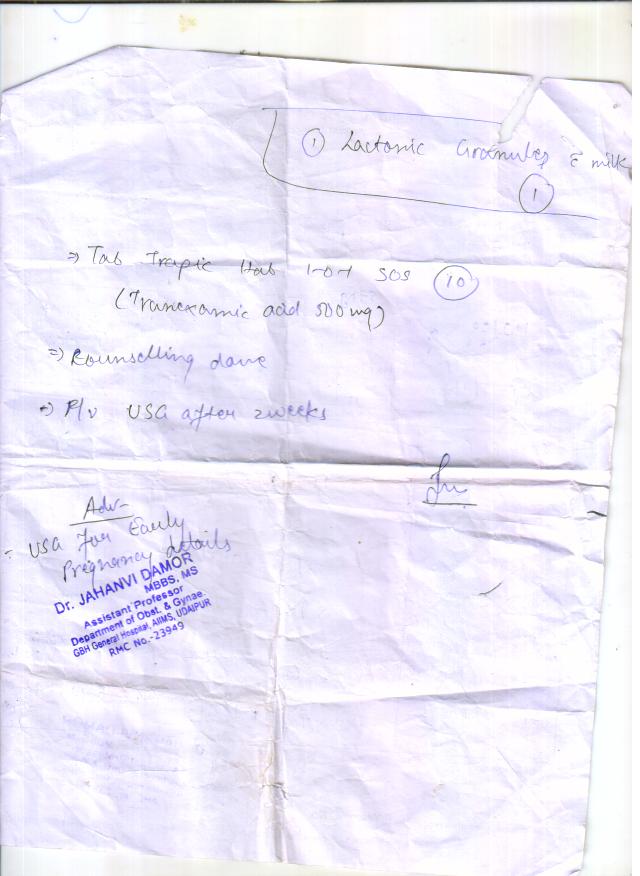 ① Lactonic Granules c̄ milk
①
⇒ Tab Trapic Hab 1-0-1 SOS ⑩
(Tranexamic acid 500mg)
⇒ Counselling done
⇒ F/v USG after 2weeks
Adv-
USG for Early
Pregnancy details
Dr. JAHANVI DAMOR
MBBS, MS
Assistant Professor
Department of Obst. & Gynae.
GBH General Hospital, AIIMS, UDAIPUR
RMC No.-23949